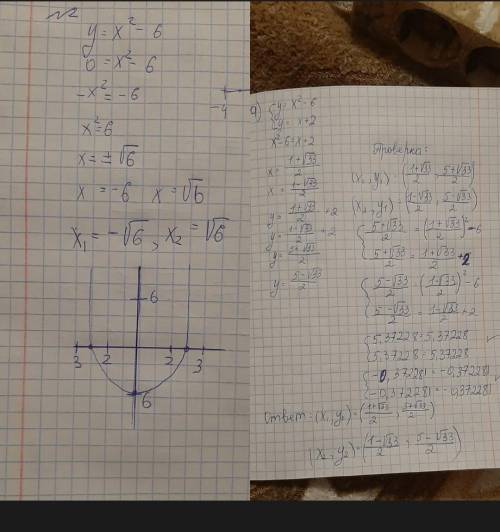 №2
y = x² - 6
0 = x² - 6
-x² = -6
x² = 6
x = ± √6
x = -6 x = √6
x₁ = -√6, x₂ = √6
6
3 2 2 3
6
-4
9) { y = x² - 6
y = x + 2
x² - 6 = x + 2
x = (1+√33)/2
x = (1-√33)/2
y = (1+√33)/2 + 2
y = (1-√33)/2 + 2
y = (5+√33)/2
y = (5-√33)/2
Проверка:
(x₁, y₁) = ((1+√33)/2, (5+√33)/2)
(x₂, y₂) = ((1-√33)/2, (5-√33)/2)
{ (5+√33)/2 = ((1+√33)/2)² - 6
(5+√33)/2 = (1+√33)/2 + 2
{ (5-√33)/2 = ((1-√33)/2)² - 6
(5-√33)/2 = (1-√33)/2 + 2
{ 5,37228 = 5,37228
5,37228 = 5,37228
{ -0,372281 = -0,372281
-0,372281 = -0,372281
Ответ: (x₁, y₁) = ((1+√33)/2; (5+√33)/2)
(x₂, y₂) = ((1-√33)/2; (5-√33)/2)